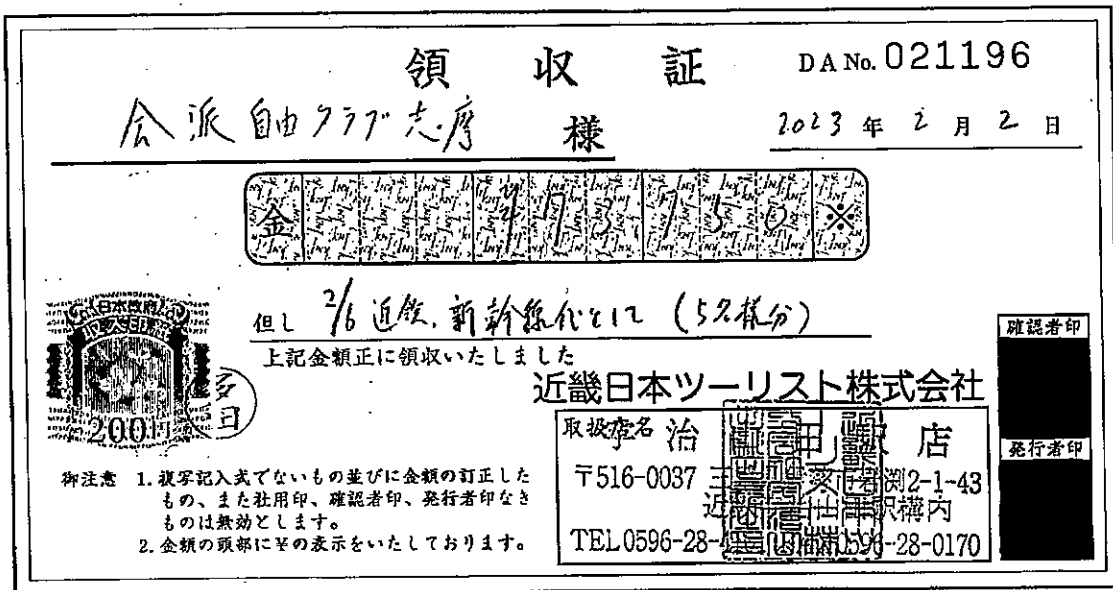 領収証
DA No. 021196
会派自由クラブ志摩 様
2023年2月2日
金 ¥73150※
但し 2/6 近鉄、新幹線代として (5名様分)
上記金額正に領収いたしました
日本政府
200円
近畿日本ツーリスト株式会社
取扱店名
〒516-0037
2-1-43
駅構内
TEL 0596-28-
0596-28-0170
確認者印
発行者印
御注意 1. 複写記入式でないもの並びに金額の訂正した
もの、また社用印、確認者印、発行者印なき
ものは無効とします。
2. 金額の頭部に¥の表示をいたしております。